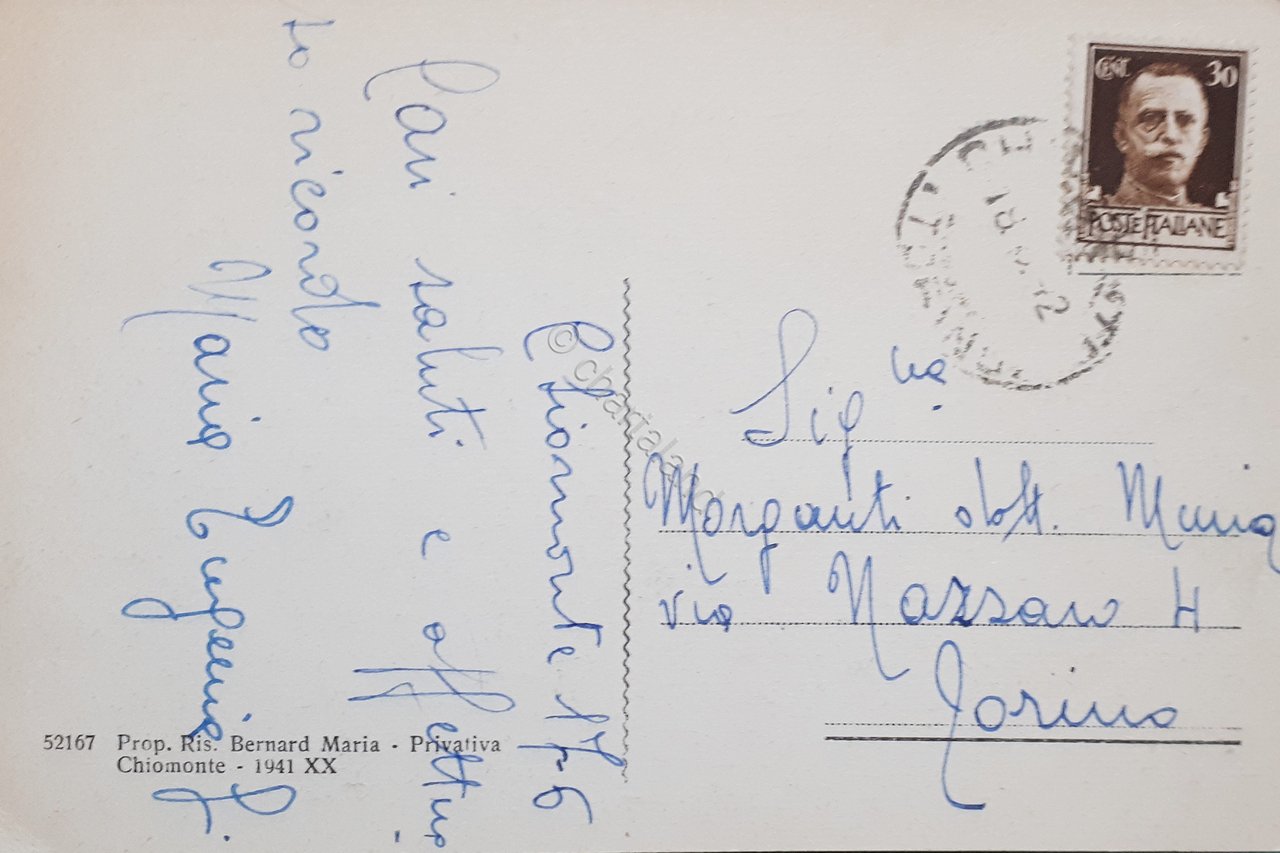 Chiomonte 17-6
Cari saluti e affettuo
to ricordo
Maria Eugenia
CENT. 30
POSTE ITALIANE
Sig.na
Morganti dott. Maria
via Nazzaro 4
Torino
52167 Prop. Ris. Bernard Maria - Privativa
Chiomonte - 1941 XX